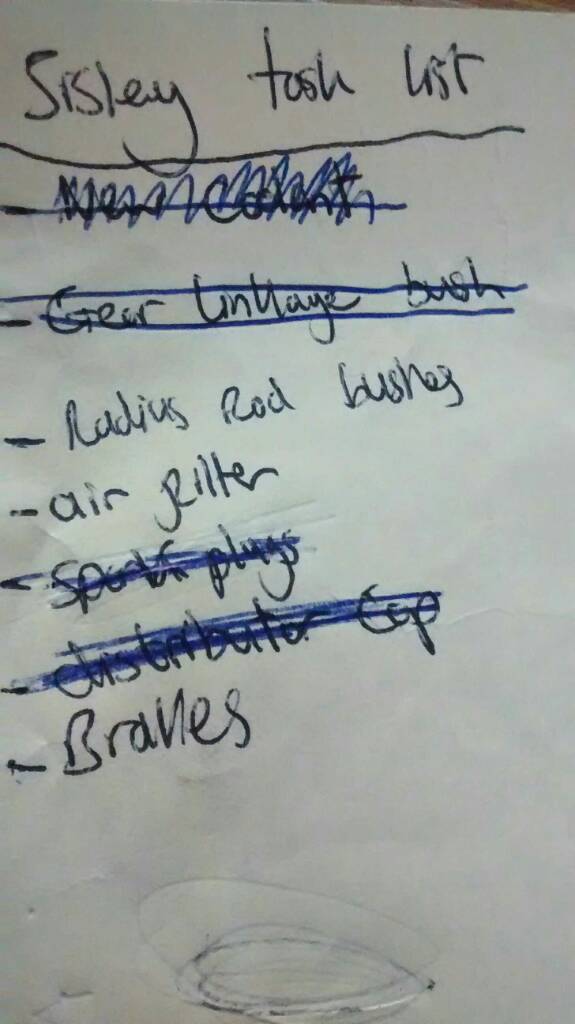 Sisley task list
- New Coolant
- Gear linkage bush
- Radius Rod bushes
- air filter
- spark plugs
- distributor Cap
- Brakes